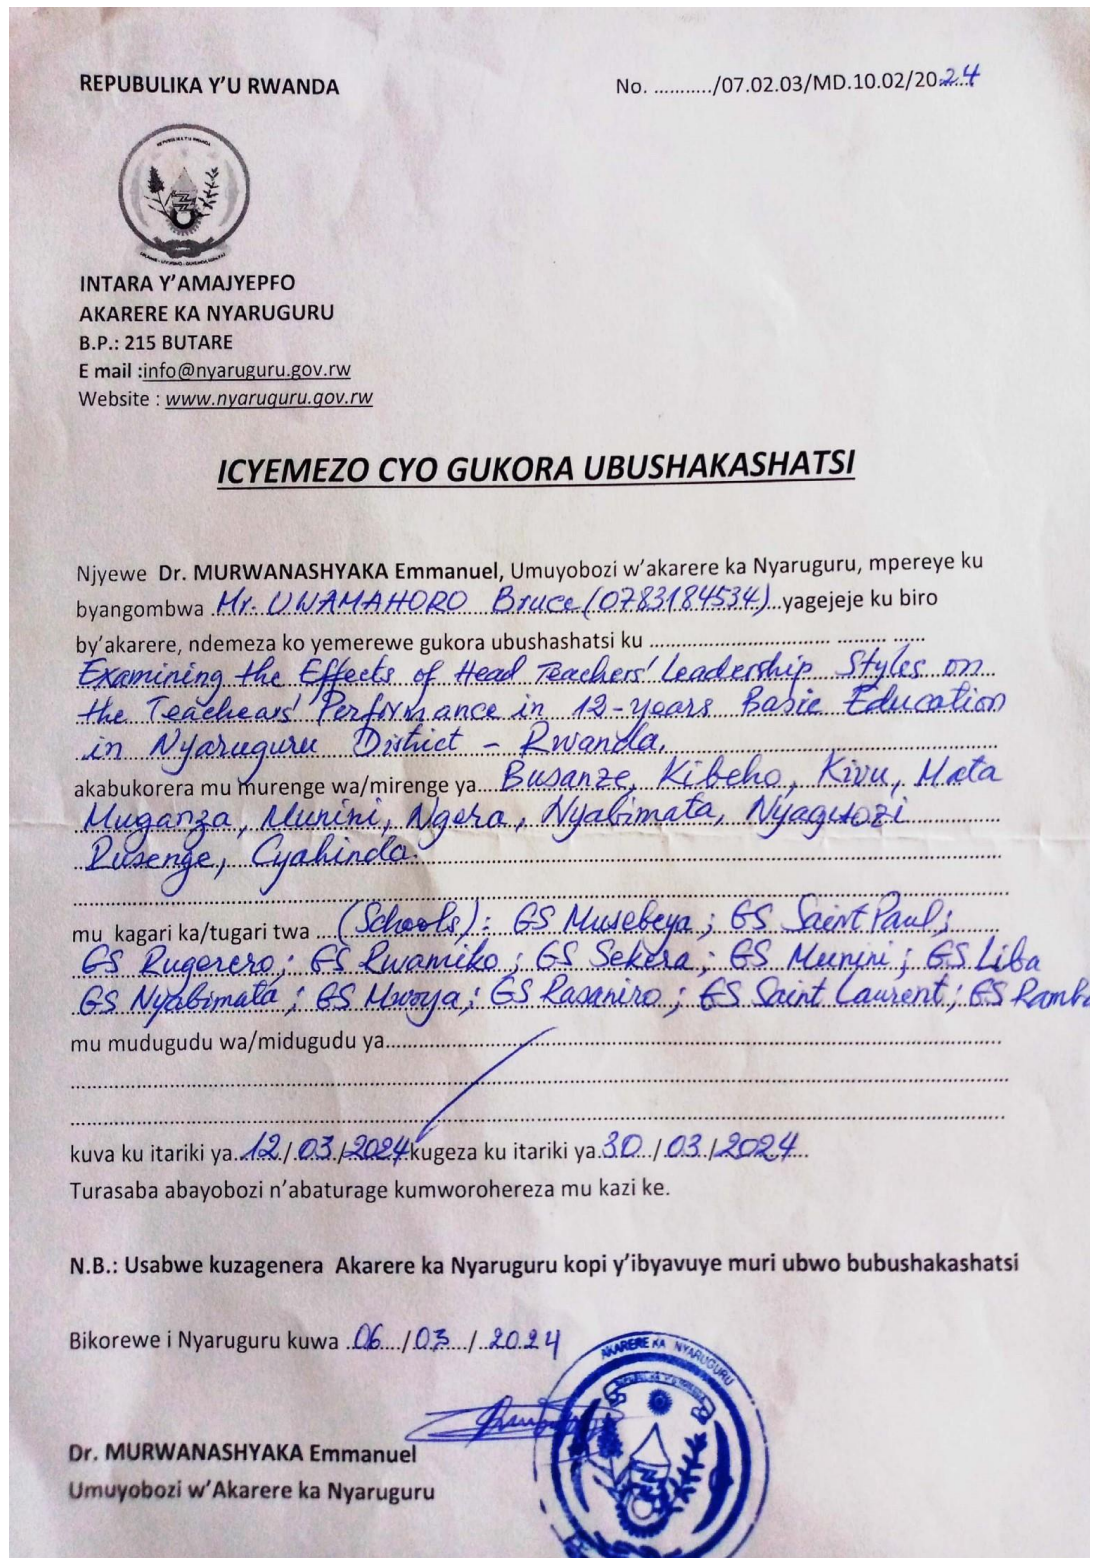 REPUBULIKA Y'U RWANDA
No. .........../07.02.03/MD.10.02/2024
REPUBULIKA Y'U RWANDA
INTARA Y'AMAJYEPFO
AKARERE KA NYARUGURU
B.P.: 215 BUTARE
E mail :info@nyaruguru.gov.rw
Website : www.nyaruguru.gov.rw
ICYEMEZO CYO GUKORA UBUSHAKASHATSI
Njyewe Dr. MURWANASHYAKA Emmanuel, Umuyobozi w'akarere ka Nyaruguru, mpereye ku
byangombwa Mr. UWAMAHORO Bruce (0783184534) yagejeje ku biro
by'akarere, ndemeza ko yemerewe gukora ubushashatsi ku .............................. ......... ......
Examining the Effects of Head Teachers' Leadership Styles on
the Teachears' Performance in 12-years Basic Education
in Nyaruguru District - Rwanda.
akabukorera mu murenge wa/mirenge ya Busanze, Kibeho, Kivu, Mata
Muganza, Munini, Ngera, Nyabimata, Nyagisozi
Rusenge, Cyahinda.
mu kagari ka/tugari twa (Schools): GS Musebeya ; GS Saint Paul;
GS Rugorero; GS Rwamiko ; GS Sekera ; GS Munini ; GS Liba
GS Nyabimata ; GS Mwoya ; GS Rasaniro ; GS Saint Laurent ; GS Ramba
mu mudugudu wa/midugudu ya...............
kuva ku itariki ya 12/03/2024 kugeza ku itariki ya 30/03/2024
Turasaba abayobozi n'abaturage kumworohereza mu kazi ke.
N.B.: Usabwe kuzagenera Akarere ka Nyaruguru kopi y'ibyavuye muri ubwo bubushakashatsi
Bikorewe i Nyaruguru kuwa 06/03/2024
AKARERE KA NYARUGURU
Dr. MURWANASHYAKA Emmanuel
Umuyobozi w'Akarere ka Nyaruguru